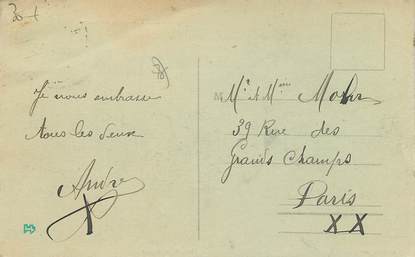 Je vous embrasse
tous les deux
André
Mr et Mme Mohr
39 Rue des
Grands Champs
Paris
XX